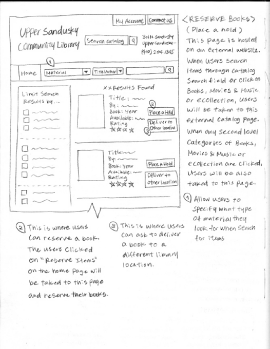 My Account | Contact Us
Upper Sandusky
Community Library
Search catalog
Home
Material
Limit Search
Results by...
xx Results Found
Title:
By:
Book: year
Available:
Rating
Place a Hold
Deliver to
other location
Title:
By:
Book: year
Available:
Rating
Place a Hold
Deliver to
other location
<RESERVE BOOKS>
(Place a hold)
This page is hosted
on an external website.
When users search
items through catalog
Search field or click on
Books, Movies & Music
or eCollection, users
will be taken to this
external catalog page.
When any second level
categories of Books,
Movies & Music or
eCollection are clicked,
users will be also
taken to this page.
1 Allow users to
specify what type
of material they
look for when search
for items.
2 This is where users
can reserve a book.
The users clicked
on "Reserve Items"
on the home page will
be taken to this page
and reserve their books.
3 This is where users
can ask to deliver
a book to a
different library
location.